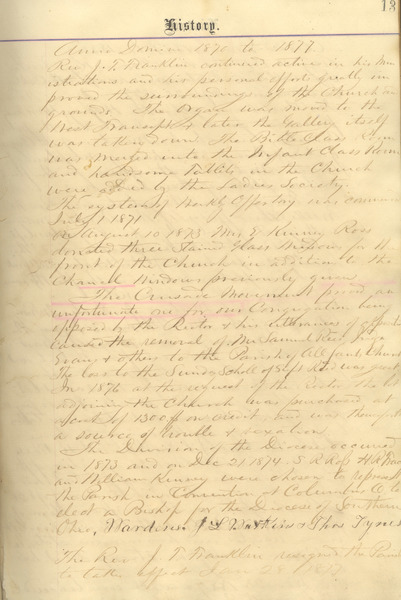 13
History.
Anno Domini 1870 to 1877
Rev. J. T. Franklin continued active in his
and his personal effort greatly im
proved the surroundings of the Church
grounds. The Organ was moved to the
West Transept & later the Gallery itself
was taken down. The Bible Class Room
was merged into the Infant Class Room
and handsome Tablets in the Church
were placed by the Ladies Society.
The system of Weekly Offertory was commen
1 1871
On August 10 1873 Mrs E Kinney Ross
donated three Stained Glass Windows for the
front of the Church in addition to the
Chancel Windows previously given
The Crusade Movement proved an
unfortunate one for our Congregation being
opposed by the Rector & his utterances of
caused the removal of Mr Samuel Reed, Judge
Evans & others to the Parish of All Saints Church
The loss to the Sunday School of Supt Reed was great
In 1876 at the request of the Rector the lot
adjoining the Church was purchased at
a cost of 1300 on credit and was thought
a source of trouble & vexation.
The Division of the Diocese occurred
in 1873 and on Dec 21 1874. S R Ross H R
and William Kinney were chosen to represent
the Parish in Convention at Columbus O to
elect a Bishop for the Diocese of Southern
Ohio, Wardens & Thos Tynes
The Rev. J. T. Franklin resigned the Parish
to take effect